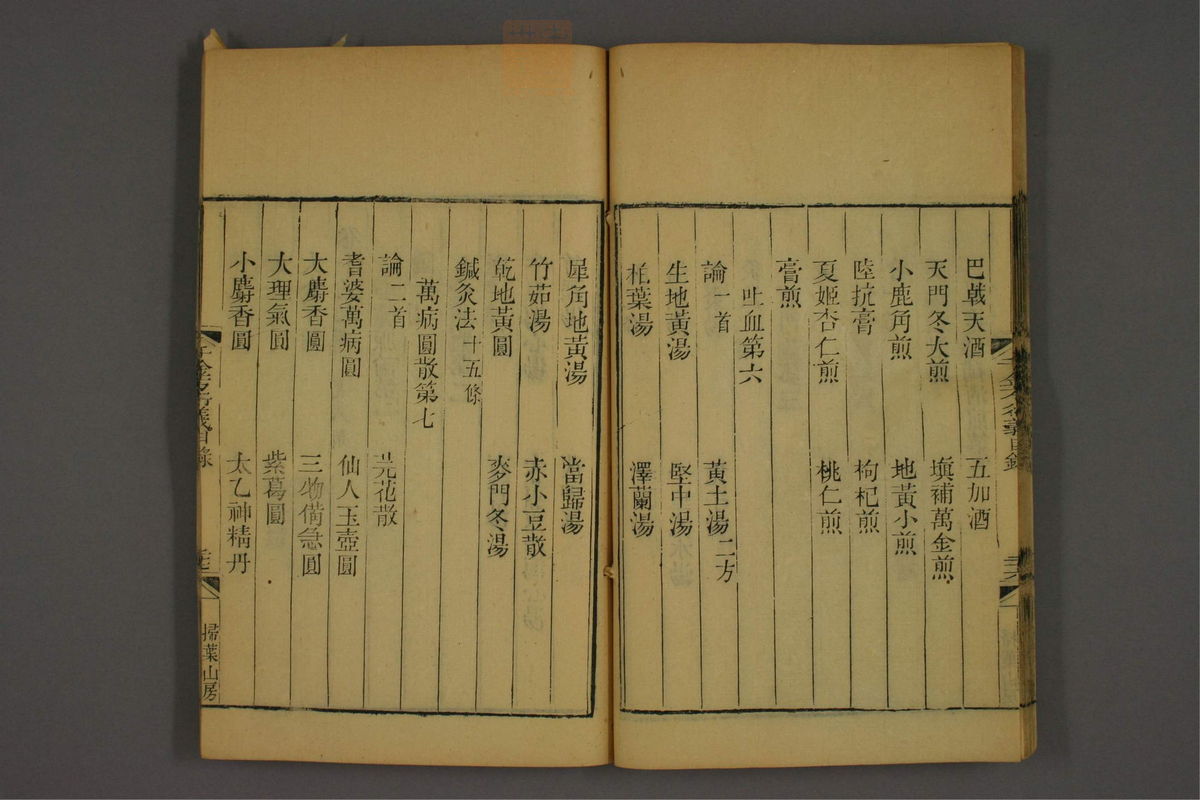 巴戟天酒 五加酒
天門冬大煎 填補萬金煎
小鹿角煎 地黃小煎
陸抗膏 枸杞煎
夏姬杏仁煎 桃仁煎
膏煎
吐血第六
論一首 黃土湯二方
生地黃湯 堅中湯
柏葉湯 澤蘭湯
犀角地黃湯 當歸湯
竹茹湯 赤小豆散
乾地黃圓 麥門冬湯
鍼灸法十五條
萬病圓散第七
論二首 芫花散
耆婆萬病圓 仙人玉壺圓
大麝香圓 三物備急圓
大理氣圓 紫葛圓
小麝香圓 太乙神精丹
掃葉山房